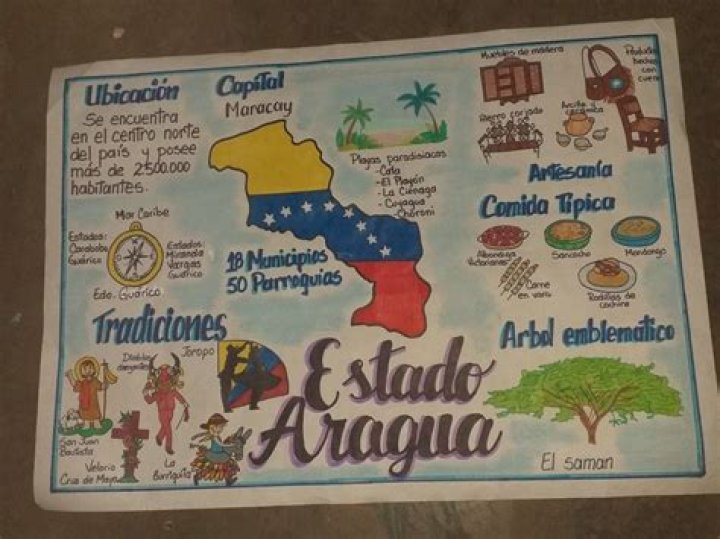 Ubicación
Se encuentra
en el centro norte
del país y posee
más de 2.500.000
habitantes.
Mar Caribe
Estados:
Carabobo
Guárico
Estados:
Miranda
Vargas
Guárico
Edo. Guárico
Capital
Maracay
Playas paradisiacas
- Cata
- El Playón
- La Ciénaga
- Cuyagua
- Choroní
18 Municipios
50 Parroquias
Muebles de madera
Producto
hechos
con
cuero
Hierro forjado
Arcilla y
cerámica
Artesanía
Comida Típica
Sancocho
Mondongo
Carne
en vara
Rodillas de
cochino
Tradiciones
Diablos
danzantes
Joropo
San Juan
Bautista
Velorio
Cruz de Mayo
La
Burriquita
Estado
Aragua
Arbol emblemático
El saman